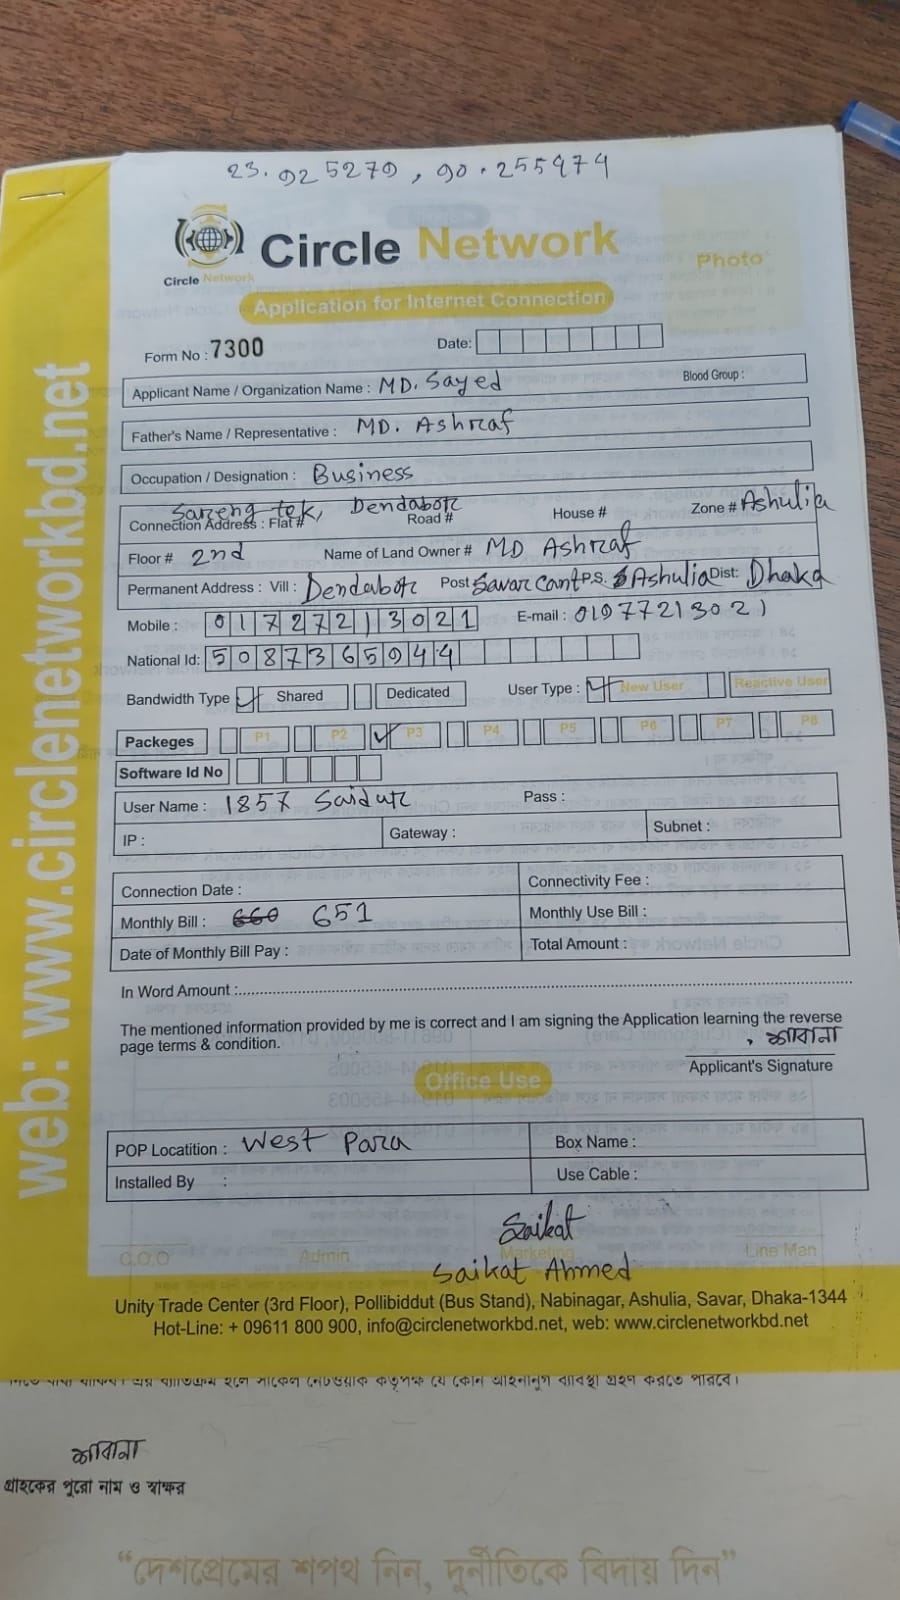 23.925270, 90.255474
Circle Network
Circle Network
Photo
Application for Internet Connection
Form No : 7300 Date:
Applicant Name / Organization Name : MD. Sayed Blood Group :
Father's Name / Representative : MD. Ashraf
Occupation / Designation : Business
Sareng tek, Dendabor
Connection Address : Flat # Road # House # Zone # Ashulia
Floor # 2nd Name of Land Owner # MD Ashraf
Permanent Address : Vill : Dendabor Post Savar Cant P.S. Ashulia Dist: Dhaka
Mobile : 01727213021 E-mail : 01977213021
National Id: 5087365944
Bandwidth Type Shared Dedicated User Type : New User Reactive User
Packeges P1 P2 P3 P4 P5 P6 P7 P8
Software Id No
User Name : 1857 Saidur Pass :
IP : Gateway : Subnet :
Connection Date : Connectivity Fee :
Monthly Bill : 660 651 Monthly Use Bill :
Date of Monthly Bill Pay : Total Amount :
In Word Amount :
The mentioned information provided by me is correct and I am signing the Application learning the reverse
page terms & condition.
শাবানা
Applicant's Signature
Office Use
POP Locatition : West Para Box Name :
Installed By : Use Cable :
Saikat
C.O.O Admin Marketing Line Man
Saikat Ahmed
Unity Trade Center (3rd Floor), Pollibiddut (Bus Stand), Nabinagar, Ashulia, Savar, Dhaka-1344
Hot-Line: + 09611 800 900, info@circlenetworkbd.net, web: www.circlenetworkbd.net
web: www.circlenetworkbd.net
হলে সার্কেল নেটওয়ার্ক কর্তৃপক্ষ যে কোন আইনানুগ ব্যবস্থা গ্রহণ করতে পারবে।
শাবানা
গ্রাহকের পুরো নাম ও স্বাক্ষর
“দেশপ্রেমের শপথ নিন, দুর্নীতিকে বিদায় দিন”